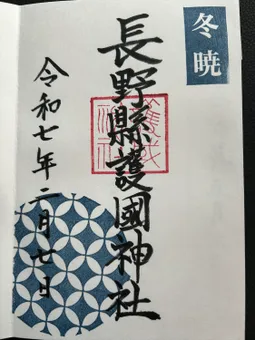 冬暁
長野縣護國神社
令和七年二月七日